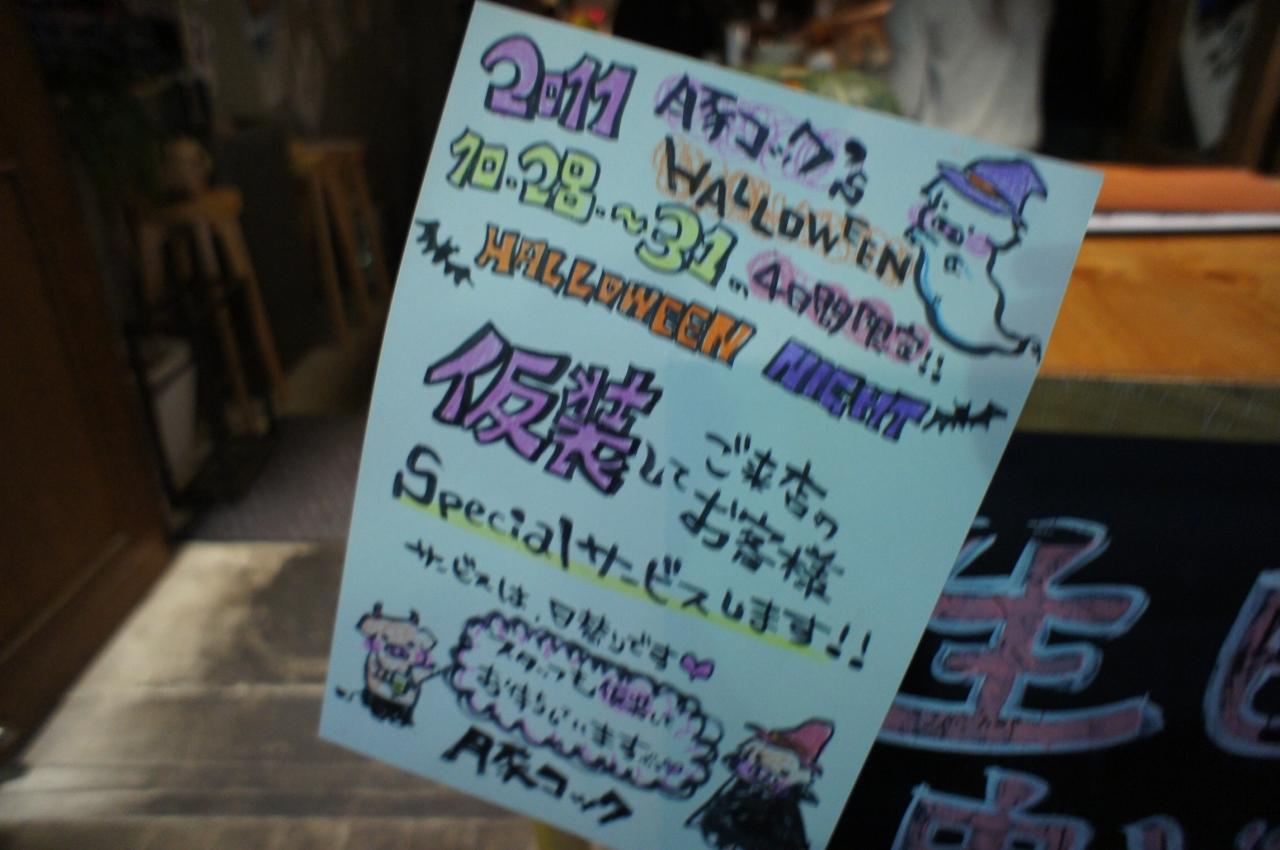 2011 月豚コック's
HALLOWEEN
10.28.~31. 4日間限定!!
HALLOWEEN NIGHT
仮装して ご来店の
お客様
Specialサービスします!!
サービスは、日替りです♥
スタッフも仮装して
お待ちしています
月豚コック
生